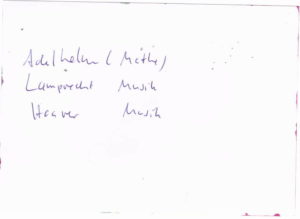 Adelhelm (Mathe)
Lamprecht Musik
Haaver Musik